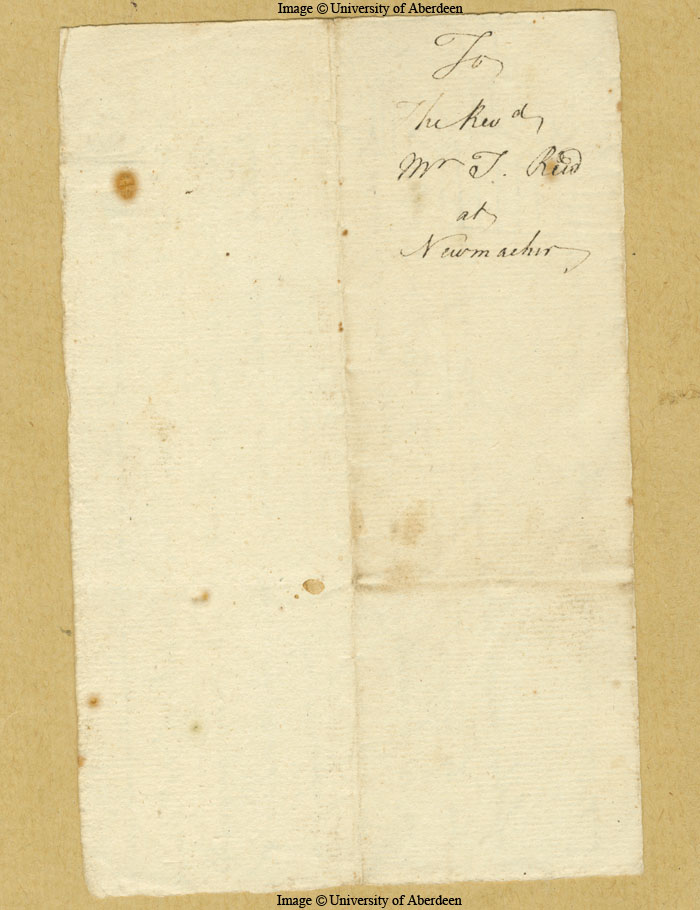 Image © University of Aberdeen
To
The Revd
Mr T. Reid
at
Newmacher
Image © University of Aberdeen